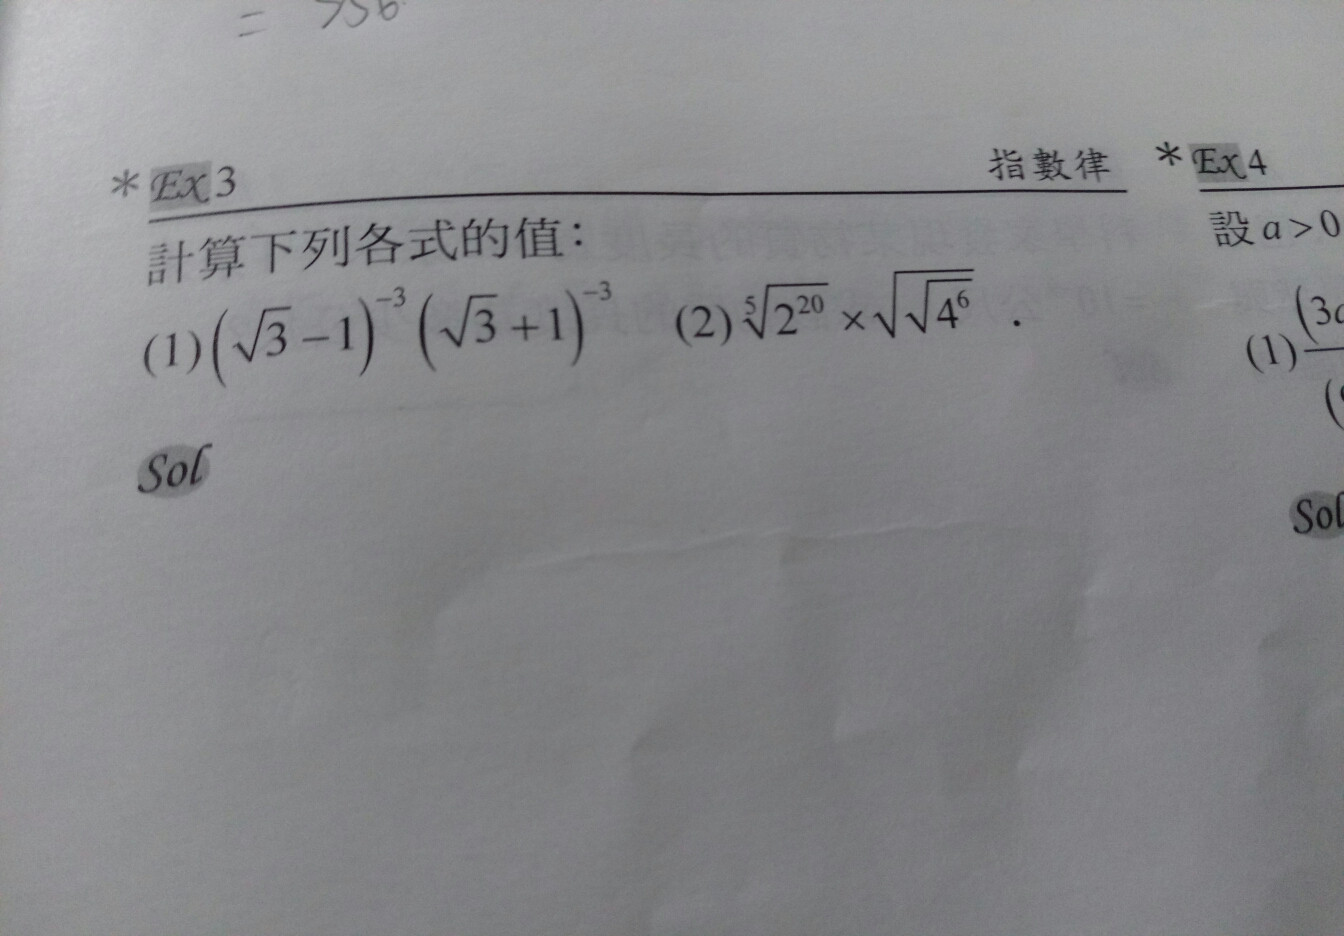 =
* Ex 3 指數律
計算下列各式的值：
(1) (√3 − 1)⁻³ (√3 + 1)⁻³ (2) ⁵√(2²⁰) × √(√(4⁶)) .
Sol
* Ex 4
設 a > 0
(1)
Sol